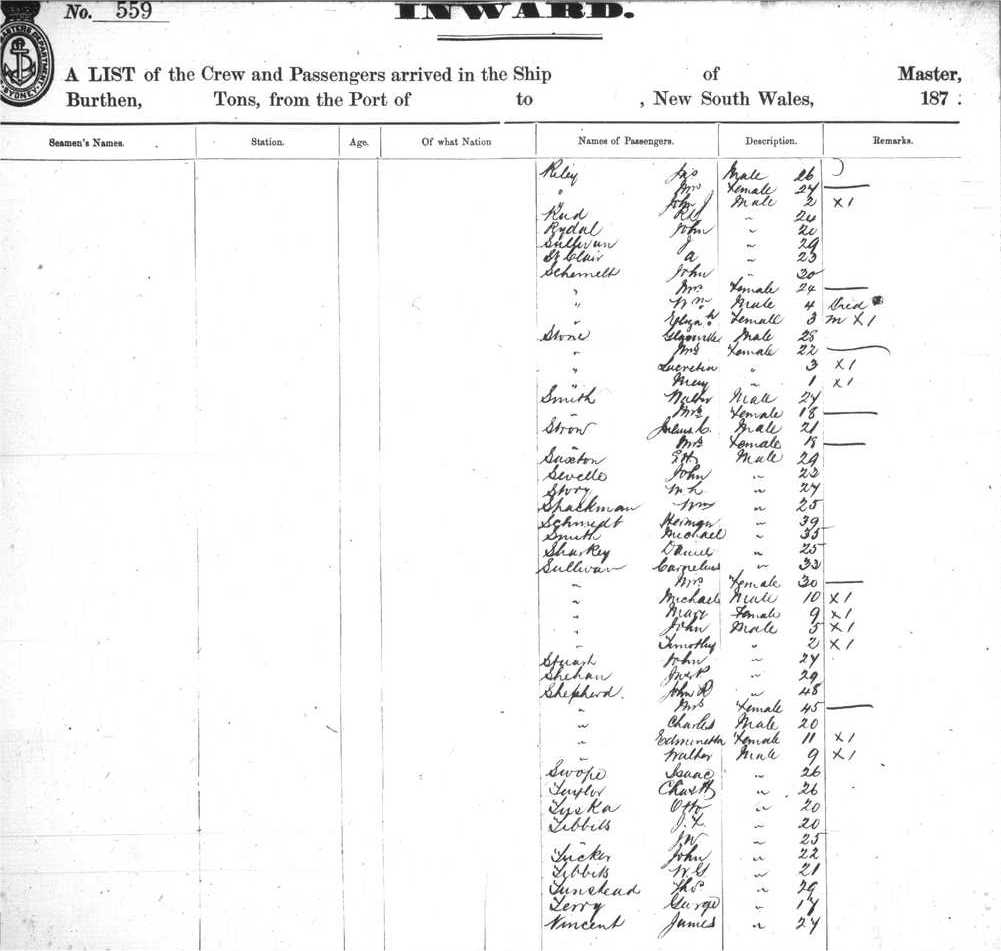 No. 559
INWARD.
A LIST of the Crew and Passengers arrived in the Ship of Master,
Burthen, Tons, from the Port of to , New South Wales, 187 :
Seamen's Names. Station. Age. Of what Nation Names of Passengers. Description. Remarks.
Riley Jas Male 26
" Mrs Female 24
" John J Male 2 X1
Rud Male
Rydal John " 20
Sullivan J " 29
St Clair A " 23
Schemelt John " 30
" Mrs Female 24
" Wm Male 4 Died
" Elizah Female 3 m X1
Stone Male 28
" Mrs Female 22
" Lucretia " 3 X1
" May " 1 X1
Smith Walter Male 24
" Mrs Female 18
Strow Julius C. Male 21
" Mrs Female 18
Saxton E H Male 29
Sevelle John " 22
Story " 24
Shackman Wm " 25
Schmidt Herman " 39
Smith Michael " 35
Sharkey Daniel " 25
Sullivan Cornelius " 33
" Mrs Female 30
" Michael Male 10 X1
" Mary Female 9 X1
" John Male 5 X1
" Timothy " 2 X1
Stuart John " 24
Shehan " 29
Shepherd. John R " 48
" Mrs Female 45
" Charles Male 20
" Edminetta Female 11 X1
" Walter Male 9 X1
Swope Isaac " 26
Taylor Chas H " 26
Tyska Otto " 20
Tibbits J. T. " 20
" J W " 25
Tucker John " 22
Tibbits W G " 21
Tunstead Thos " 29
Terry George " 17
Vincent James " 24